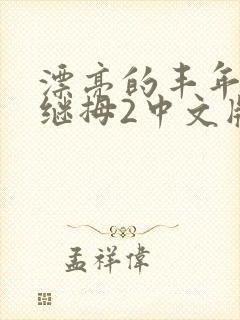 漂亮的丰年
继拇2中文版
孟祥偉